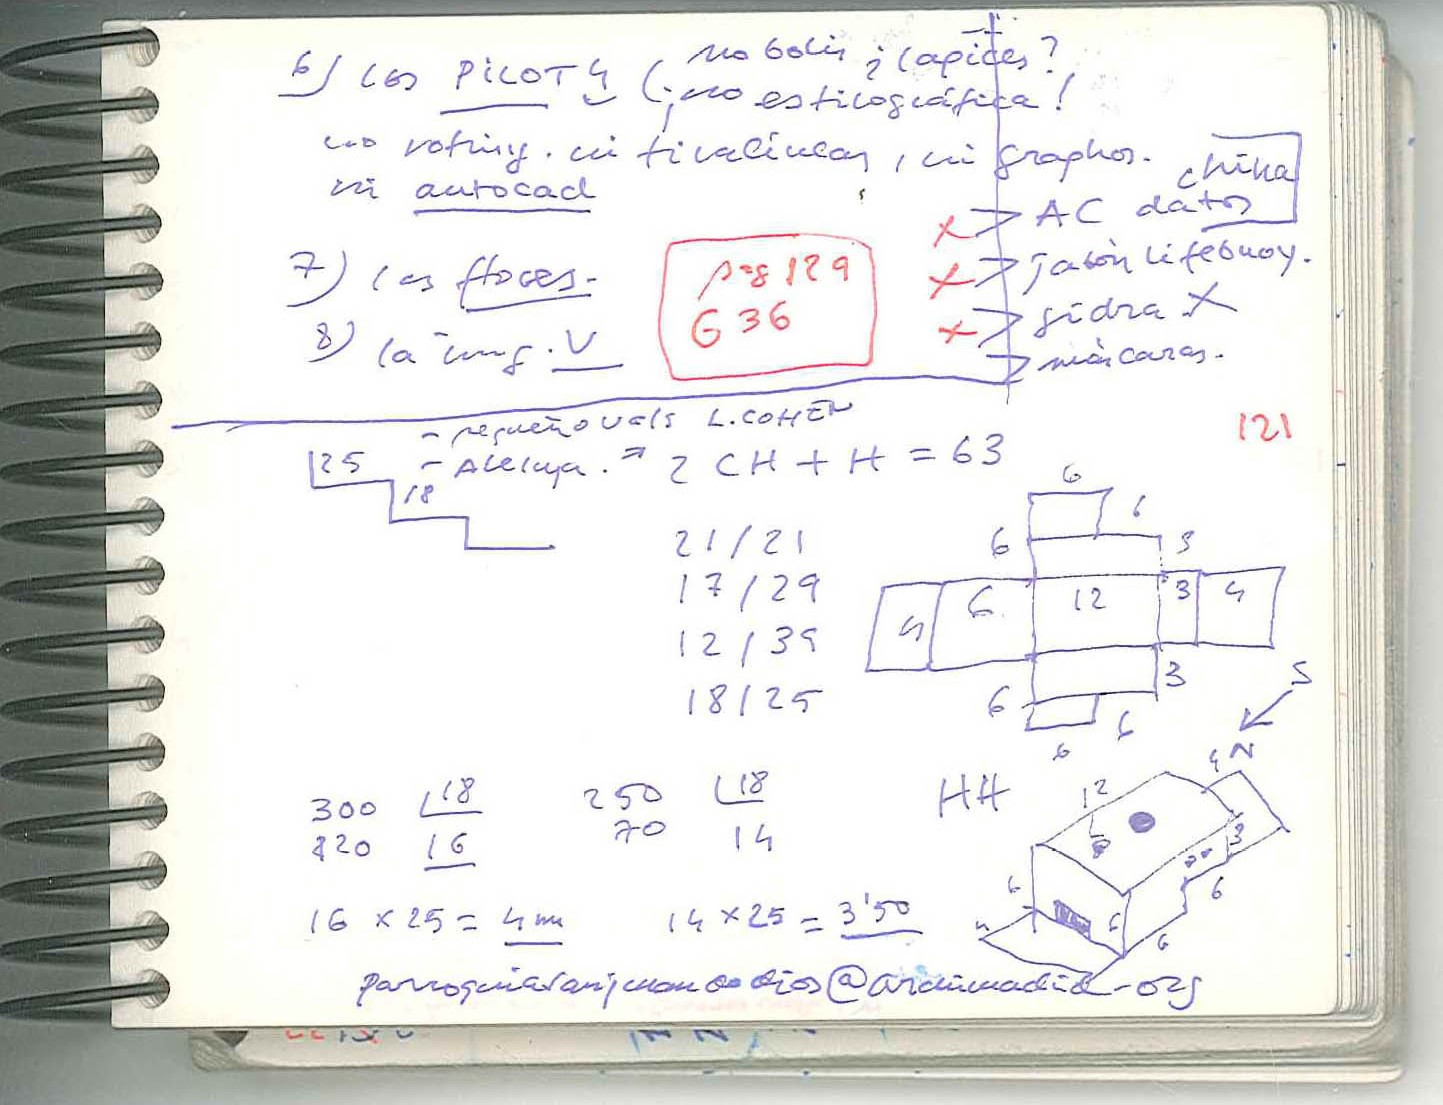 6) los PILOT 4 (
no bolis ¿lapices?
¡no estilográfica!
no rotring. ni tiralineas, ni graphos.
ni autocad
7) las flores.
8) la img. V
pag 129
G 36
chika
x > AC datos
x > jabón Lifebuoy.
x > sidra X
> máscaras.
- pequeño vals L. COHEN
- Aleluya. =
2 CH + H = 63
121
25
18
21/21
17/29
12/39
18/25
6
6
6 3
4 6 12 3 4
6 3
6
6
S
N
300 18
120 16
250 18
70 14
HH
12 4
3
6 6
6 6
4
16 x 25 = 4 m
14 x 25 = 3'50